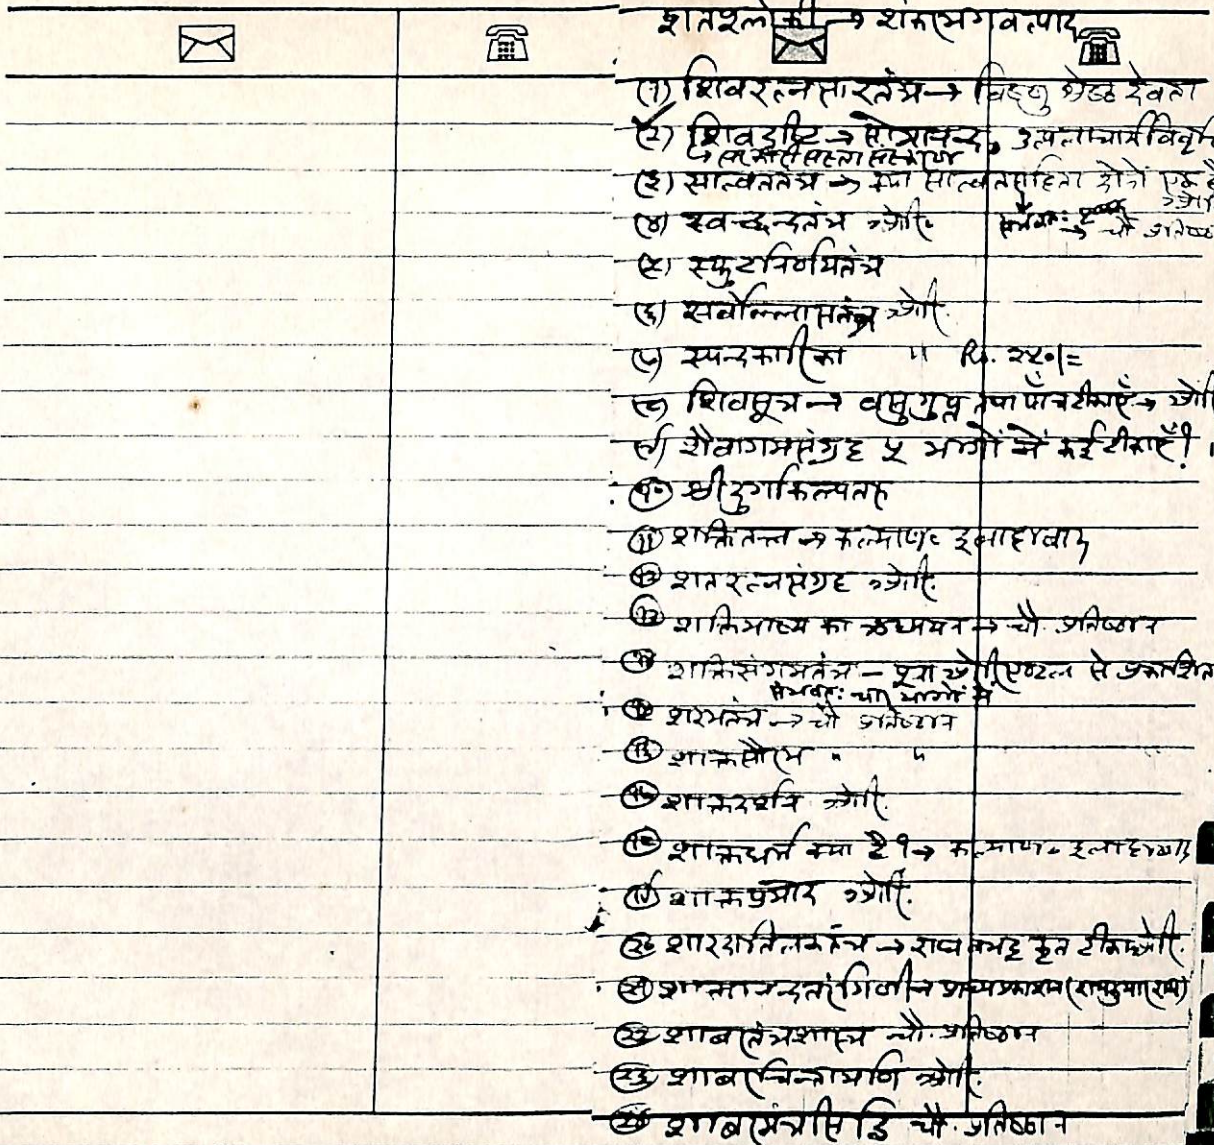 शतश्लोकी → शंकरभगवत्पाद
(१) शिवरत्नसारतंत्र → विष्णु श्रेष्ठ देवता
(२) शिवदृष्टि → सोमानन्द, उत्पलाचार्य
(३) सात्वततंत्र → क्या सात्वतसंहिता दोनों एक
(४) स्वच्छन्दतंत्र ओरि. चौ प्रतिष्ठा
(५) स्फुटनिर्णयतंत्र
(६) सर्वोल्लासतंत्र ओरि.
(७) स्पन्दकारिका " Rs. २५०/=
(८) शिवसूत्र → वसुगुप्त तथा पाँच टीकाएँ → ओरि
(९) शैवागमसंग्रह ५ भागों में कई टीकाएँ?
(१०) श्रीदुर्गाकल्पतरु
(११) शक्तितत्त्व → कल्याण इलाहाबाद
(१२) शतरत्नसंग्रह ओरि.
(१३) शक्तिभाष्य का अध्ययन → चौ. प्रतिष्ठान
शक्तिसंगमतंत्र – पूरा ओरीएण्टल से प्रकाशित
संभवतः चार भागों में
शरभतंत्र → चौ प्रतिष्ठान
शाक्तसौरभ " "
शाक्तदर्शन ओरि.
(१८) शाक्तधर्म क्या है? → कल्याण इलाहाबाद
(१९) शाक्तप्रमोद ओरि.
(२०) शारदातिलकतंत्र → राघवभट्ट कृत टीका ओरि.
(२१) शाक्तानन्दतरंगिणी → प्राच्यप्रकाशन (रामकुमार राय)
(२२) शाबरतंत्रशास्त्र चौ. प्रतिष्ठान
(२३) शाबरचिन्तामणि ओरि.
(२४) शाबरमंत्रसिद्धि चौ. प्रतिष्ठान